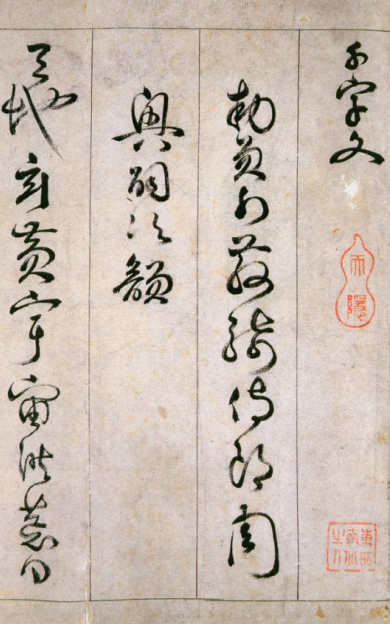 千字文
勅員外散騎侍郎周
興嗣次韻
天地玄黃宇宙洪荒日